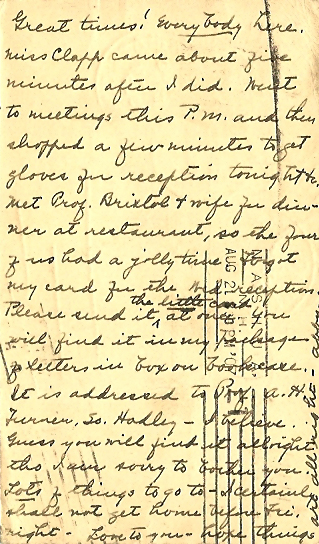 Great times! Everybody here.
Miss Clapp came about five
minutes after I did. Went
to meetings this P.M. and then
shopped a few minutes to get
gloves for reception tonight &
met Prof. Bristol & wife for din-
ner at restaurant, so the four
of us had a jolly time. Forgot
my card for the Wed. reception.
Please send it, the little card at once. You
will find it in my package
of letters in box on bookcase.
It is addressed to Prof. A. H.
Turner, So. Hadley - I believe.
Guess you will find it allright
tho I am sorry to bother you.
Lots of things to go to - I certainly
shall not get home before Fri.
night - Love to you - hope things
are all right -
WASH
AUG 21